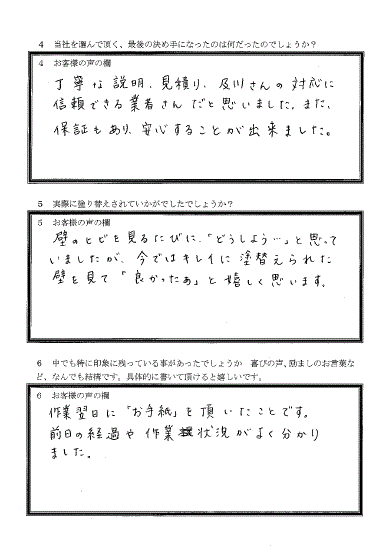 4 当社を選んで頂く、最後の決め手になったのは何だったのでしょうか？
4 お客様の声の欄
丁寧な説明、見積り、及川さんの対応に
信頼できる業者さんだと思いました。また、
保証もあり、安心することが出来ました。
5 実際に塗り替えされていかがでしたでしょうか？
5 お客様の声の欄
壁のヒビを見るたびに、「どうしよう…」と思って
いましたが、今ではキレイに塗替えられた
壁を見て「良かったぁ」と嬉しく思います。
6 中でも特に印象に残っている事があったでしょうか 喜びの声、励ましのお言葉な
ど、なんでも結構です。具体的に書いて頂けると嬉しいです。
6 お客様の声の欄
作業翌日に「お手紙」を頂いたことです。
前日の経過や作業状況がよく分かり
ました。